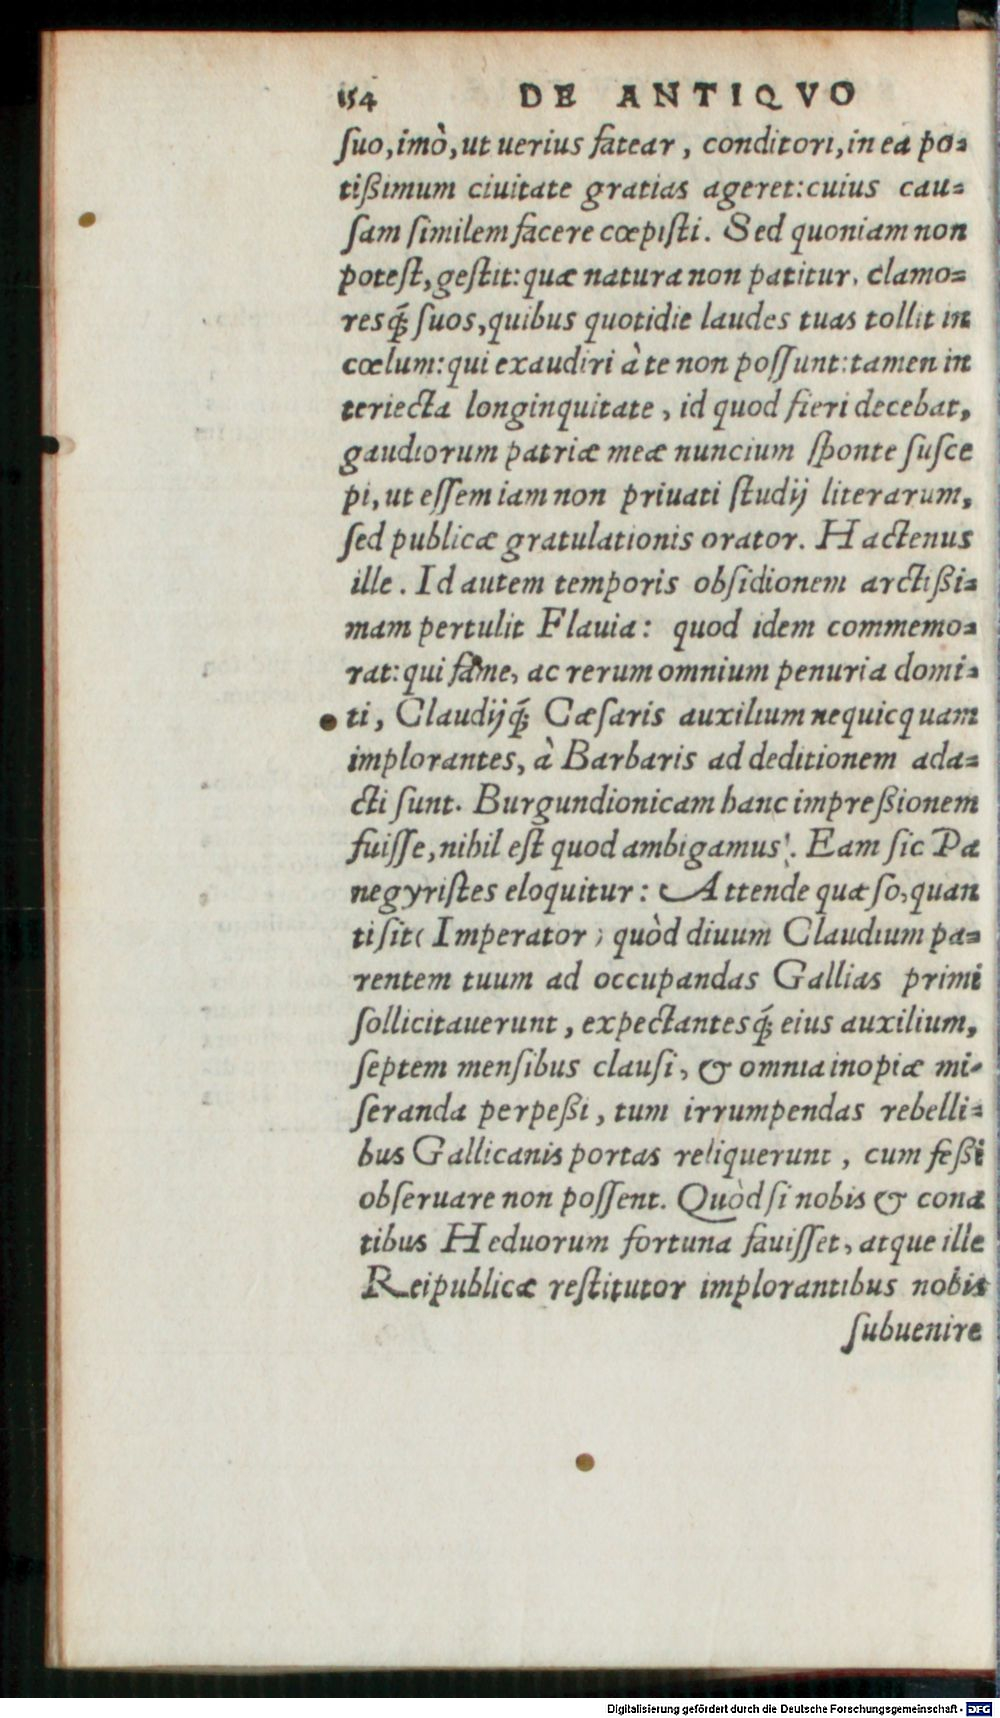 154 DE ANTIQVO
ſuo, imò, ut uerius fatear, conditori, in ea po-
tißimum ciuitate gratias ageret: cuius cau-
ſam ſimilem facere cœpiſti. Sed quoniam non
poteſt, geſtit: quæ natura non patitur, clamo-
resq́ſuos, quibus quotidie laudes tuas tollit in
cœlum: qui exaudiri à te non poſſunt: tamen in
teriecta longinquitate, id quod fieri decebat,
gaudiorum patriæ meæ nuncium ſponte ſuſce
pi, ut eſſem iam non priuati ſtudij literarum,
ſed publicæ gratulationis orator. Hactenus
ille. Id autem temporis obſidionem arctißi-
mam pertulit Flauia: quod idem commemo-
rat: qui fame, ac rerum omnium penuria domi-
ti, Claudijq́ Cæſaris auxilium nequicquam
implorantes, à Barbaris ad deditionem ada-
cti ſunt. Burgundionicam hanc impreßionem
fuiſſe, nihil eſt quod ambigamus. Eam ſic Pa
negyriſtes eloquitur: Attende quæſo, quan
ti ſit (Imperator) quòd diuum Claudium pa-
rentem tuum ad occupandas Gallias primi
ſollicitauerunt, expectantesq́ eius auxilium,
ſeptem menſibus clauſi, & omnia inopiæ mi-
ſeranda perpeßi, tum irrumpendas rebelli-
bus Gallicanis portas reliquerunt, cum feßi
obſeruare non poſſent. Quòd ſi nobis & cona
tibus Heduorum fortuna fauiſſet, atque ille
Reipublicæ reſtitutor implorantibus nobis
ſubuenire
Digitalisierung gefördert durch die Deutsche Forschungsgemeinschaft - DFG